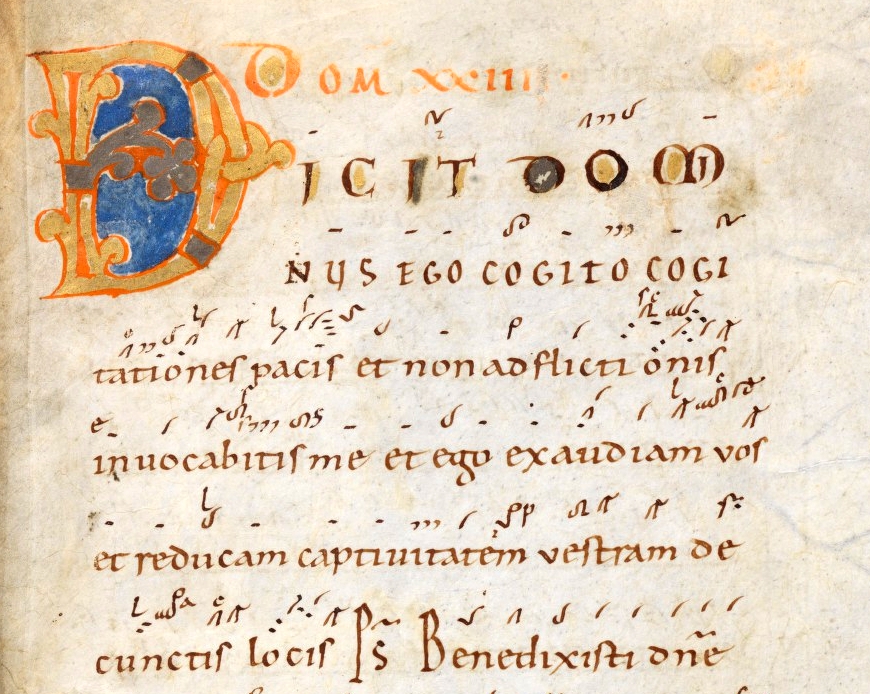 Dom xxiiii.
DICIT DOMI
NUS EGO COGITO COGI
tationes pacis et non adflictionis
inuocabitis me et ego exaudiam vos
et reducam captiuitatem vestram de
cunctis locis Ps Benedixisti dn̄e